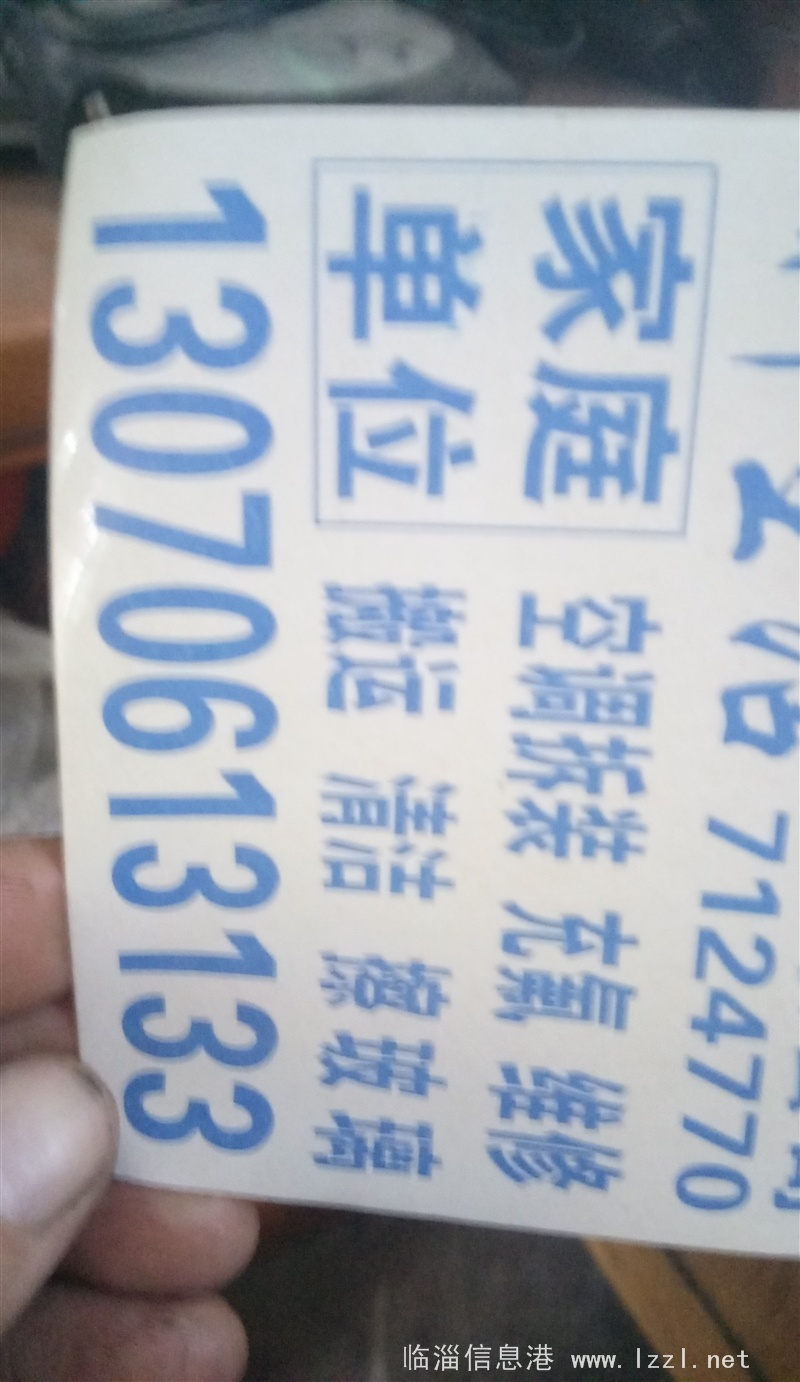 7124770
家庭 空调拆装 充氟 维修
单位 搬运 清洁 擦玻璃
13070613133
临淄信息港 www.lzzl.net